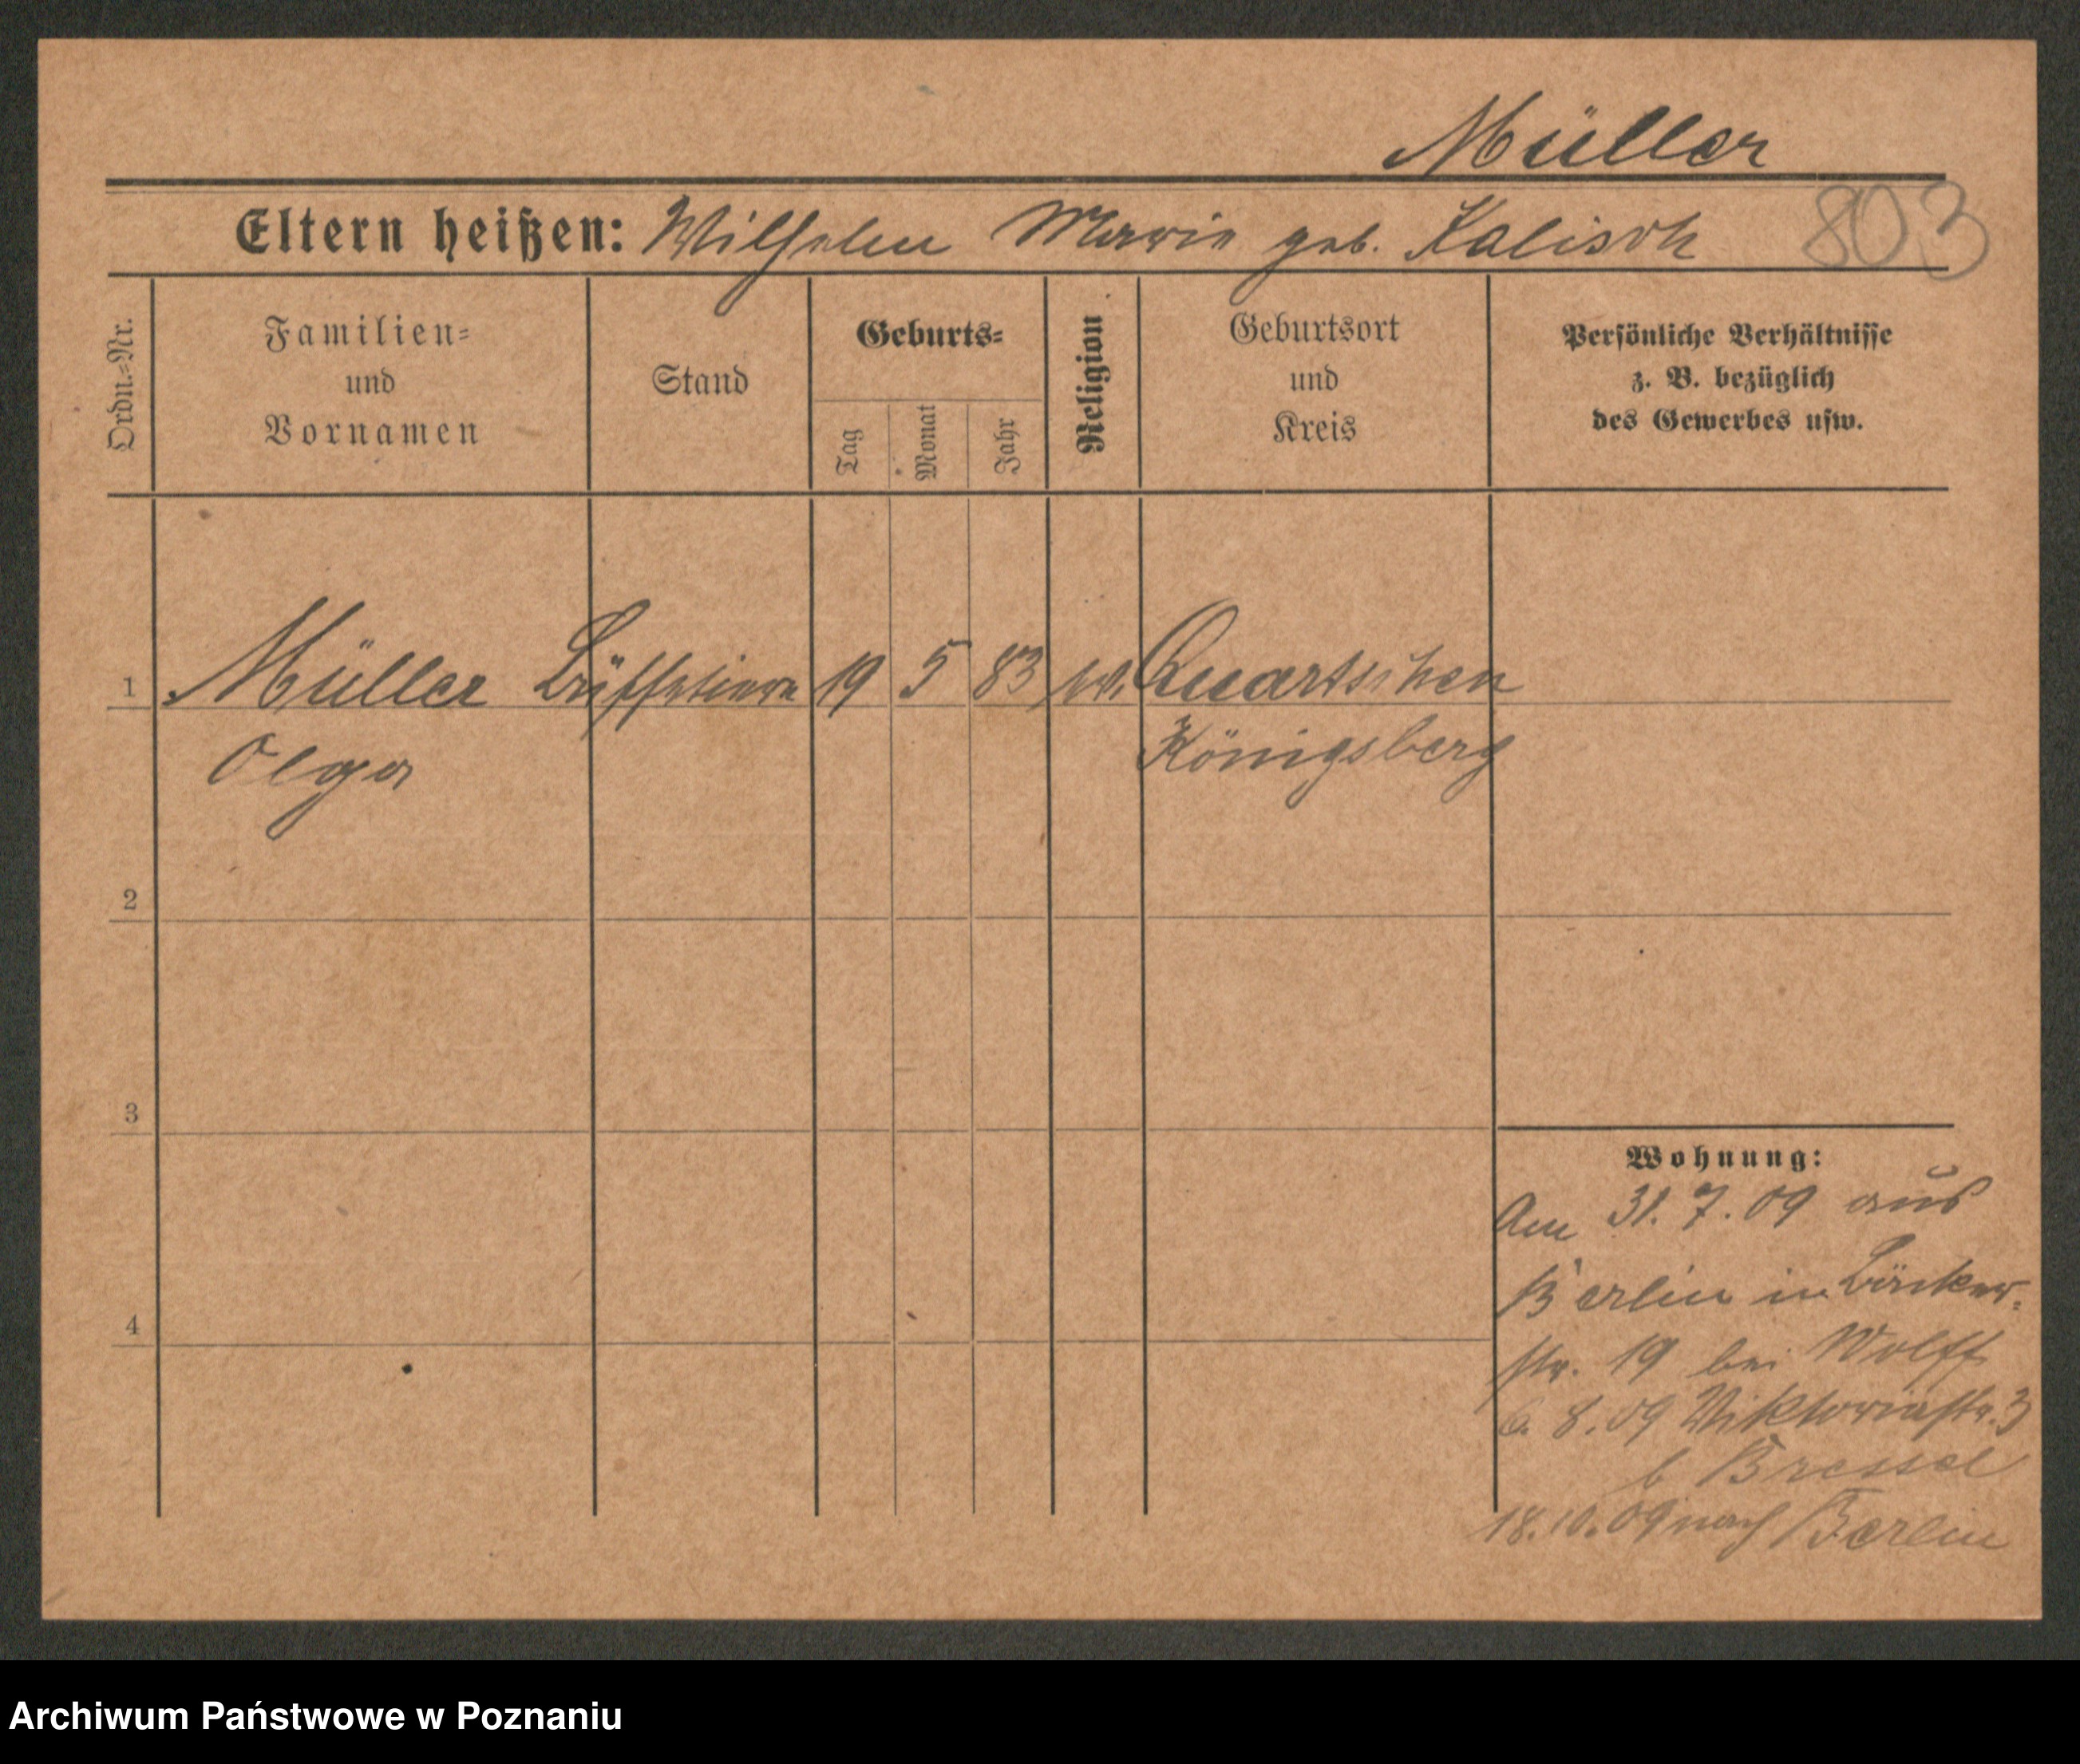 Müller
Eltern heißen: Wilhelm Marie geb. Kalisch 803
Ordn.-Nr.
Familien- und Vornamen
Stand
Geburts-
Tag
Monat
Jahr
Religion
Geburtsort und Kreis
Persönliche Verhältnisse
z. B. bezüglich
des Gewerbes usw.
1 Müller Büffetiere 19 5 83 ev. Quartschen
Olga Königsberg
2
3
4
Wohnung:
Am 31. 7. 09 aus
Berlin in Bäcker-
str. 19 bei Wolff
6. 8. 09 Viktoriastr. 3
b Bressel
18. 10. 09 nach Berlin
Archiwum Państwowe w Poznaniu